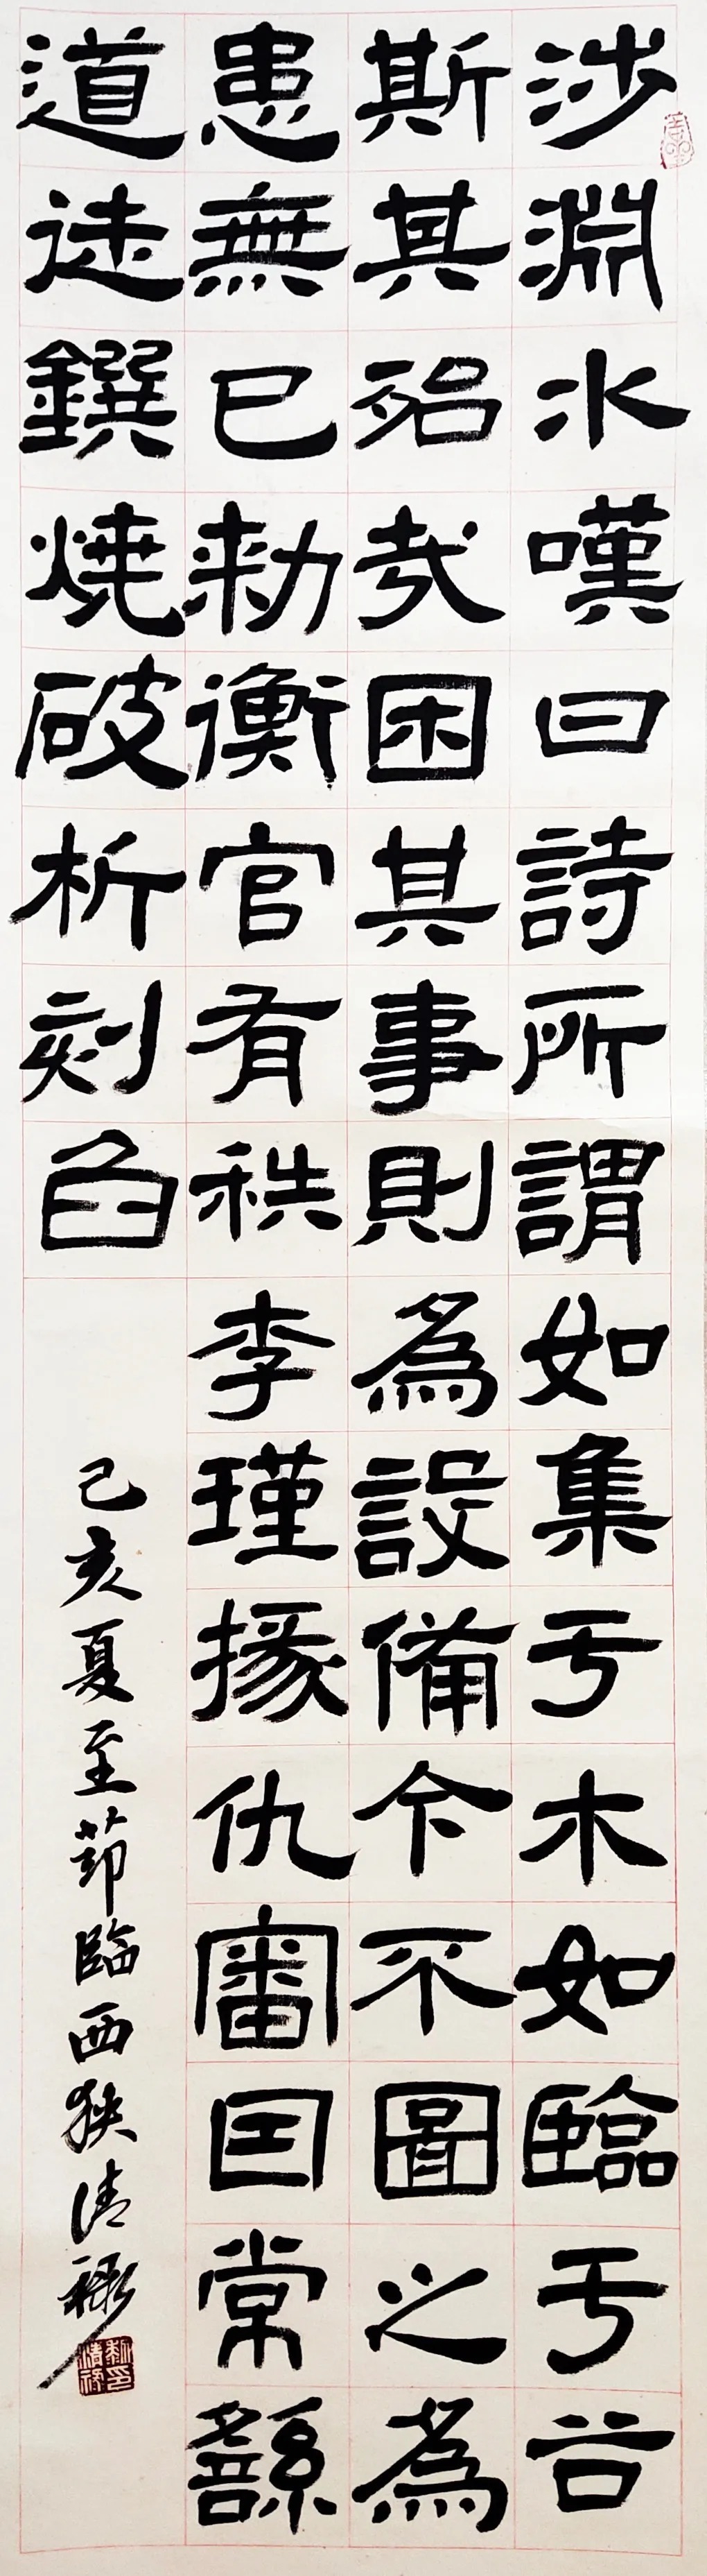 涉淵水嘆曰詩所謂如集于木如臨于谷
斯其殆哉困其事則為設備今不圖之為
患無已勅衡官有秩李瑾掾仇審因常繇
道徒鐉燒破析刻臽
己亥夏至節臨西狹清祿